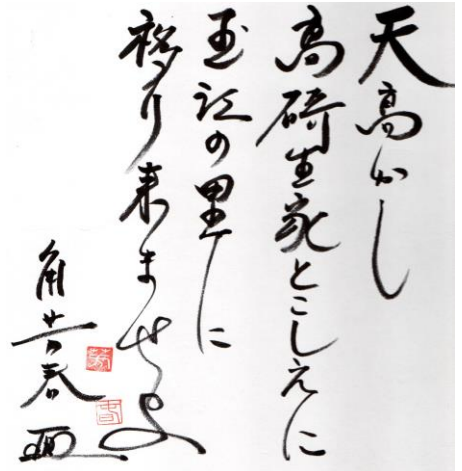 天高かし
高碕生家とこしえに
玉江の里に
移り来ませ
角芳春